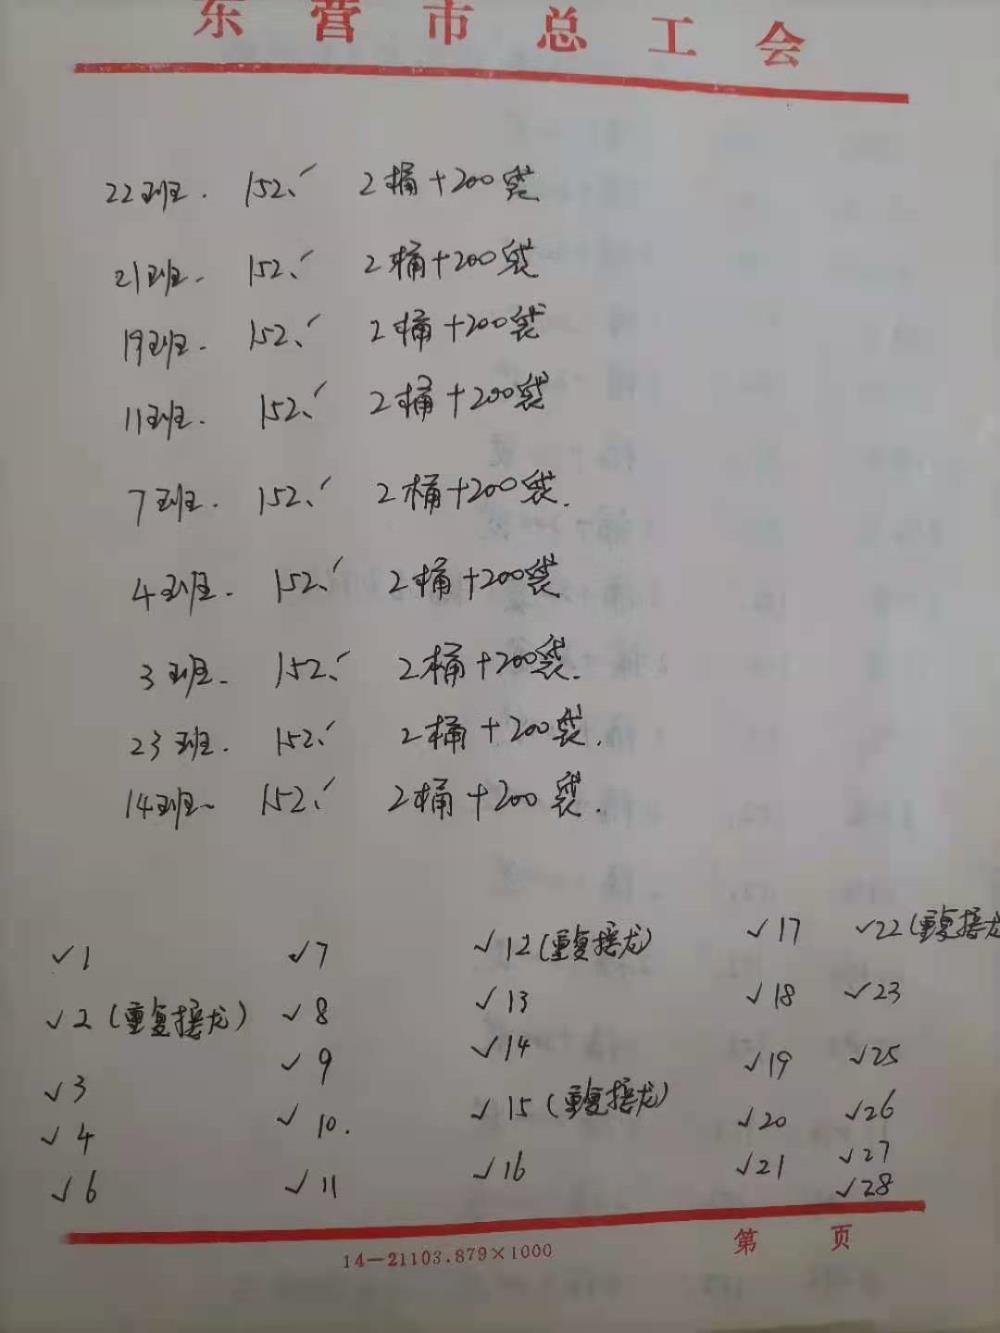 东营市总工会
22班. 152、✓ 2桶+200袋
21班. 152、✓ 2桶+200袋
19班. 152、✓ 2桶+200袋
11班. 152、✓ 2桶+200袋
7班. 152、✓ 2桶+200袋.
4班. 152、✓ 2桶+200袋
3班. 152、✓ 2桶+200袋.
23班. 152、✓ 2桶+200袋.
14班. 152、✓ 2桶+200袋.
✓1 ✓7 ✓12(重复接龙) ✓17 ✓22(重复接龙
✓2(重复接龙) ✓8 ✓13 ✓18 ✓23
✓3 ✓9 ✓14 ✓19 ✓25
✓4 ✓10. ✓15(重复接龙) ✓20 ✓26
✓6 ✓11 ✓16 ✓21 ✓27
✓28
14-21103.879×1000 第 页